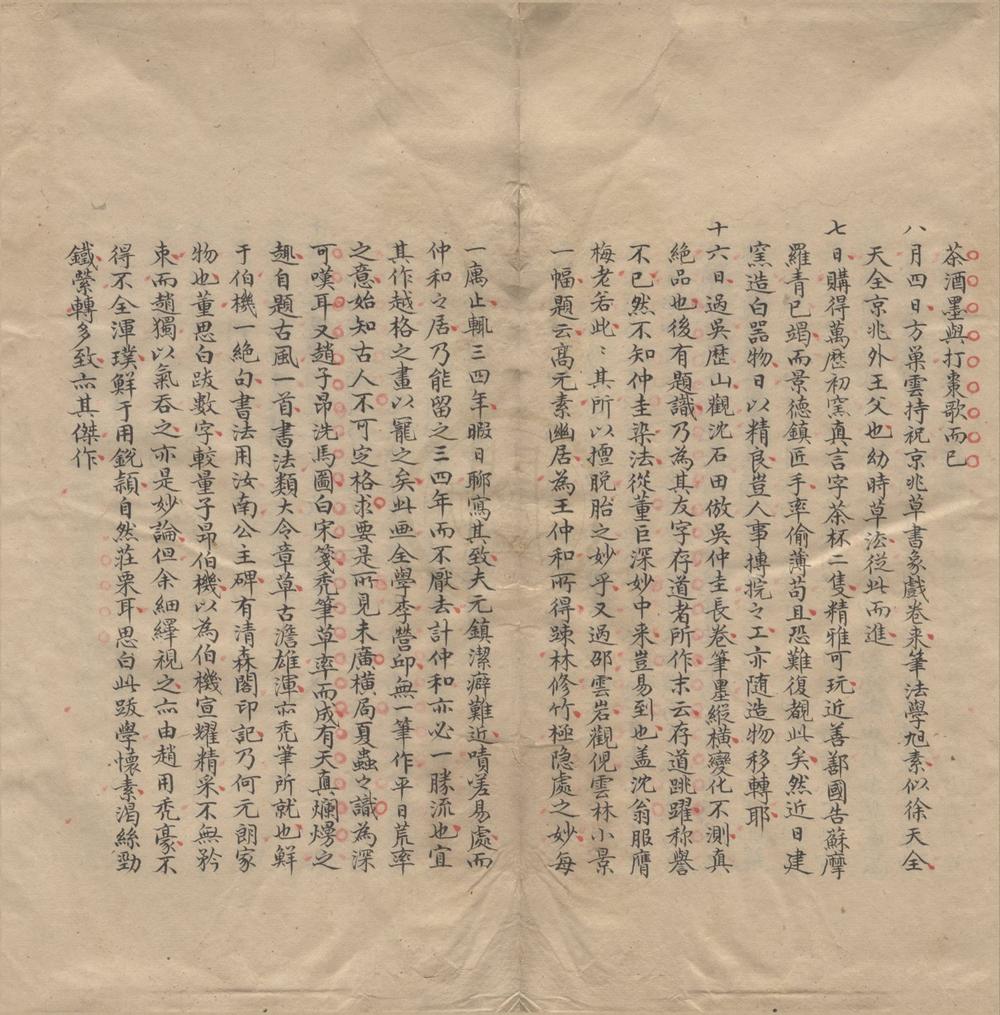 茶酒墨與打棗歌而已
八月四日方巢雲持祝京兆草書象戲卷来筆法學旭素似徐天全
天全京兆外王父也幼時草法從此而進
七日購得萬歷初窯真言字茶杯二隻精雅可玩近善鄯國告蘇摩
羅青已竭而景德鎮匠手率偷薄苟且恐難復覩此矣然近日建
窯造白器物日以精良豈人事摶捖之工亦随造物移轉耶
十六日過吳歷山觀沈石田倣吳仲圭長卷筆墨縱横變化不測真
絕品也後有題識乃為其友字存道者所作末云存道跳躍称譽
不已然不知仲圭染法從董巨深妙中来豈易到也盖沈翁服膺
梅老若此〻其所以擅脱胎之妙乎又過邵雲岩觀倪雲林小景
一幅題云髙元素幽居為王仲和所得踈林修竹極隐處之妙每
一寓止輒三四年暇日聊寫其致夫元鎮潔癖難近嘖嗟易處而
仲和之居乃能留之三四年而不厭去計仲和亦必一勝流也宜
其作越格之畫以寵之矣此画全學李營邱無一筆作平日荒率
之意始知古人不可定格求要是所見未廣横局夏蟲之識為深
可嘆耳又趙子昂洗馬圖白宋箋秃筆草率而成有天真爛熳之
趣自題古風一首書法類大令章草古澹雄渾亦秃筆所就也鮮
于伯機一絶句書法用汝南公主碑有清森閣印記乃何元朗家
物也董思白跋數字較量子昂伯機以為伯機宣耀精采不無矜
束而趙獨以氣吞之亦是妙論但余細繹視之亦由趙用秃豪不
得不全渾璞鮮于用銳頴自然莊栗耳思白此跋學懷素渴絲勁
鐵縈轉多致亦其傑作